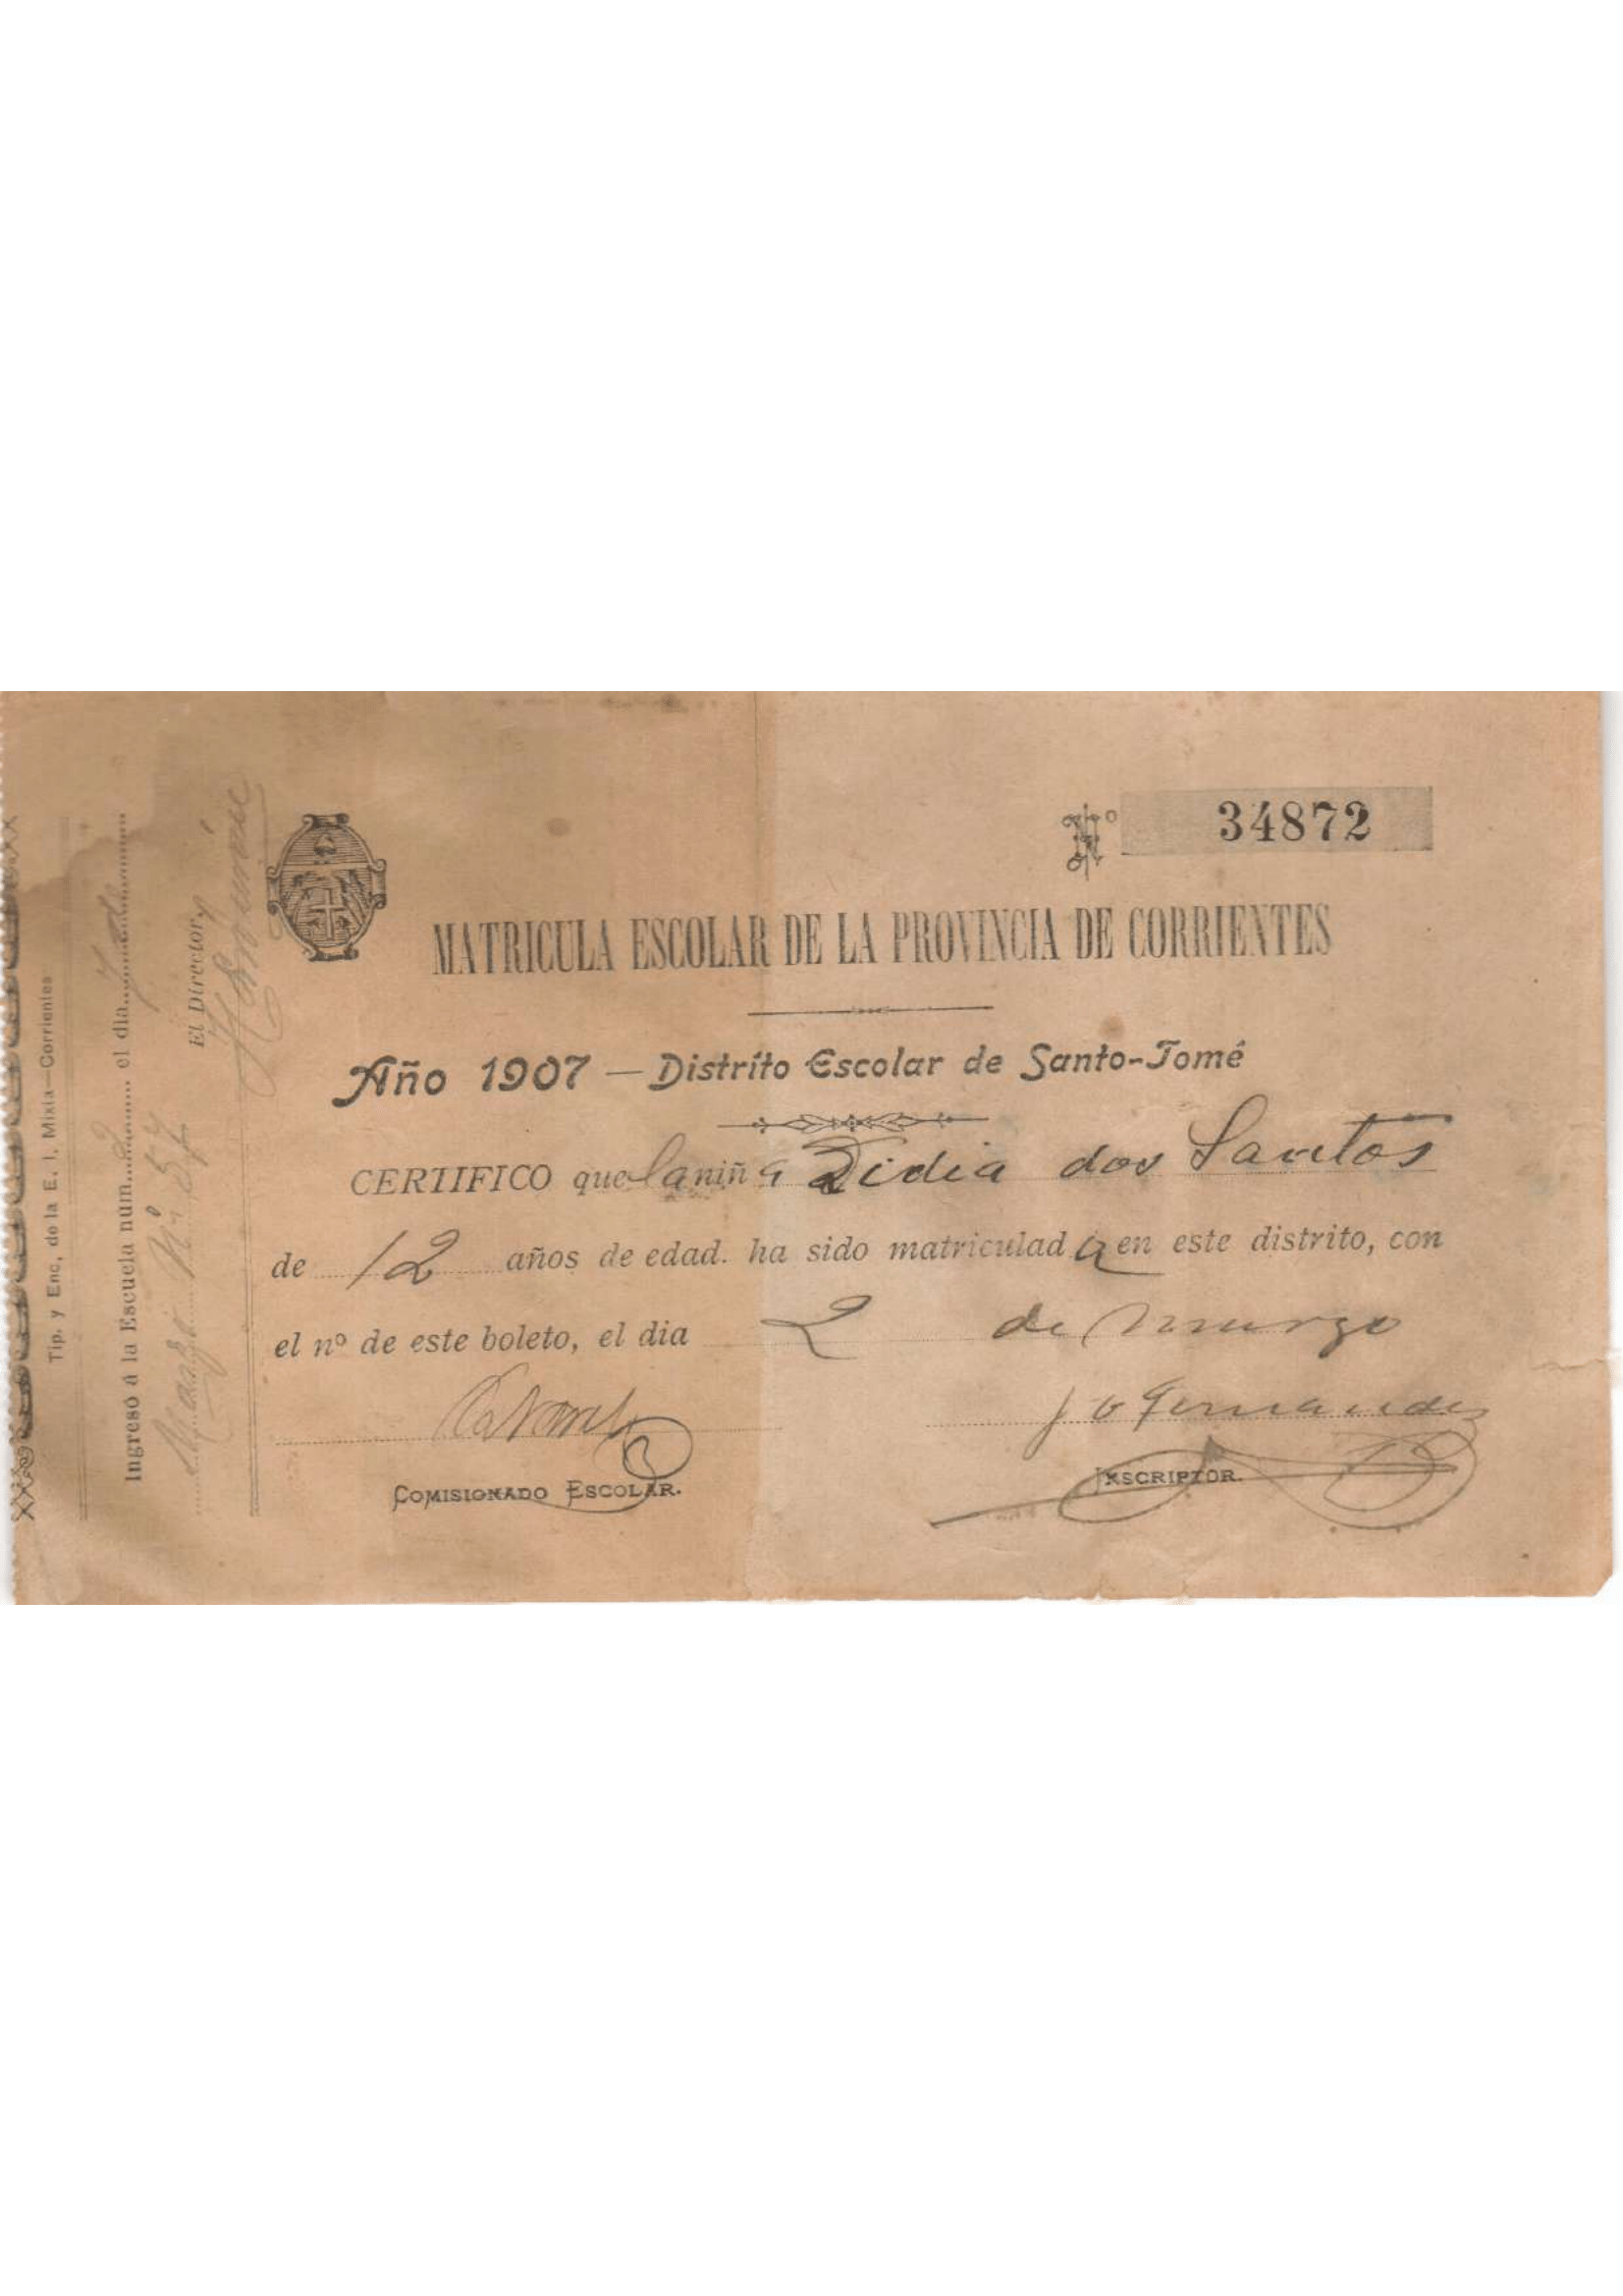 Nº 34872
MATRICULA ESCOLAR DE LA PROVINCIA DE CORRIENTES
Año 1907 — Distrito Escolar de Santo-Tomé
CERTIFICO que la niña Didia dos Santos
de 12 años de edad. ha sido matriculada en este distrito, con
el nº de este boleto, el dia 2 de marzo
Fernandez
COMISIONADO ESCOLAR.
INSCRIPTOR.
Tip. y Enc, de la E. I. Mixta—Corrientes
Ingresó á la Escuela num. 2 el dia 7 de
Marzo
El Director,